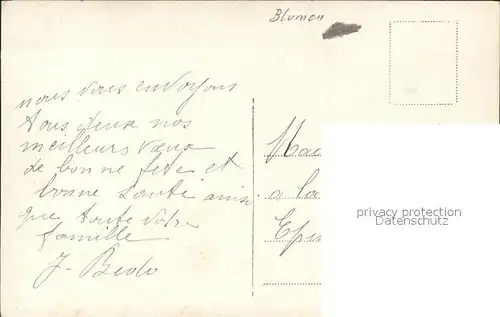 Blumen
nous vous envoyons
tous deux nos
meilleurs vœux
de bonne fête et
bonne santé ainsi
que toute votre
famille
J.
a la
privacy protection
Datenschutz